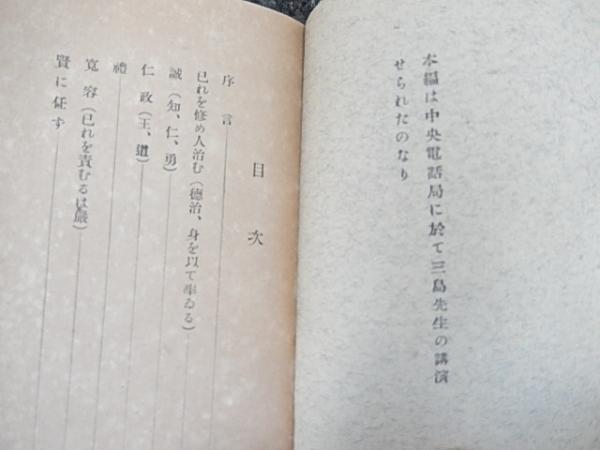 本編は中央電話局に於て三島先生の講演
せられたのなり
目次
序言
已れを修め人治む（德治、身を以て率ゐる）
誠（知、仁、勇）
仁政（王、道）
禮
寬容（已れを責むるは嚴）
賢に任す